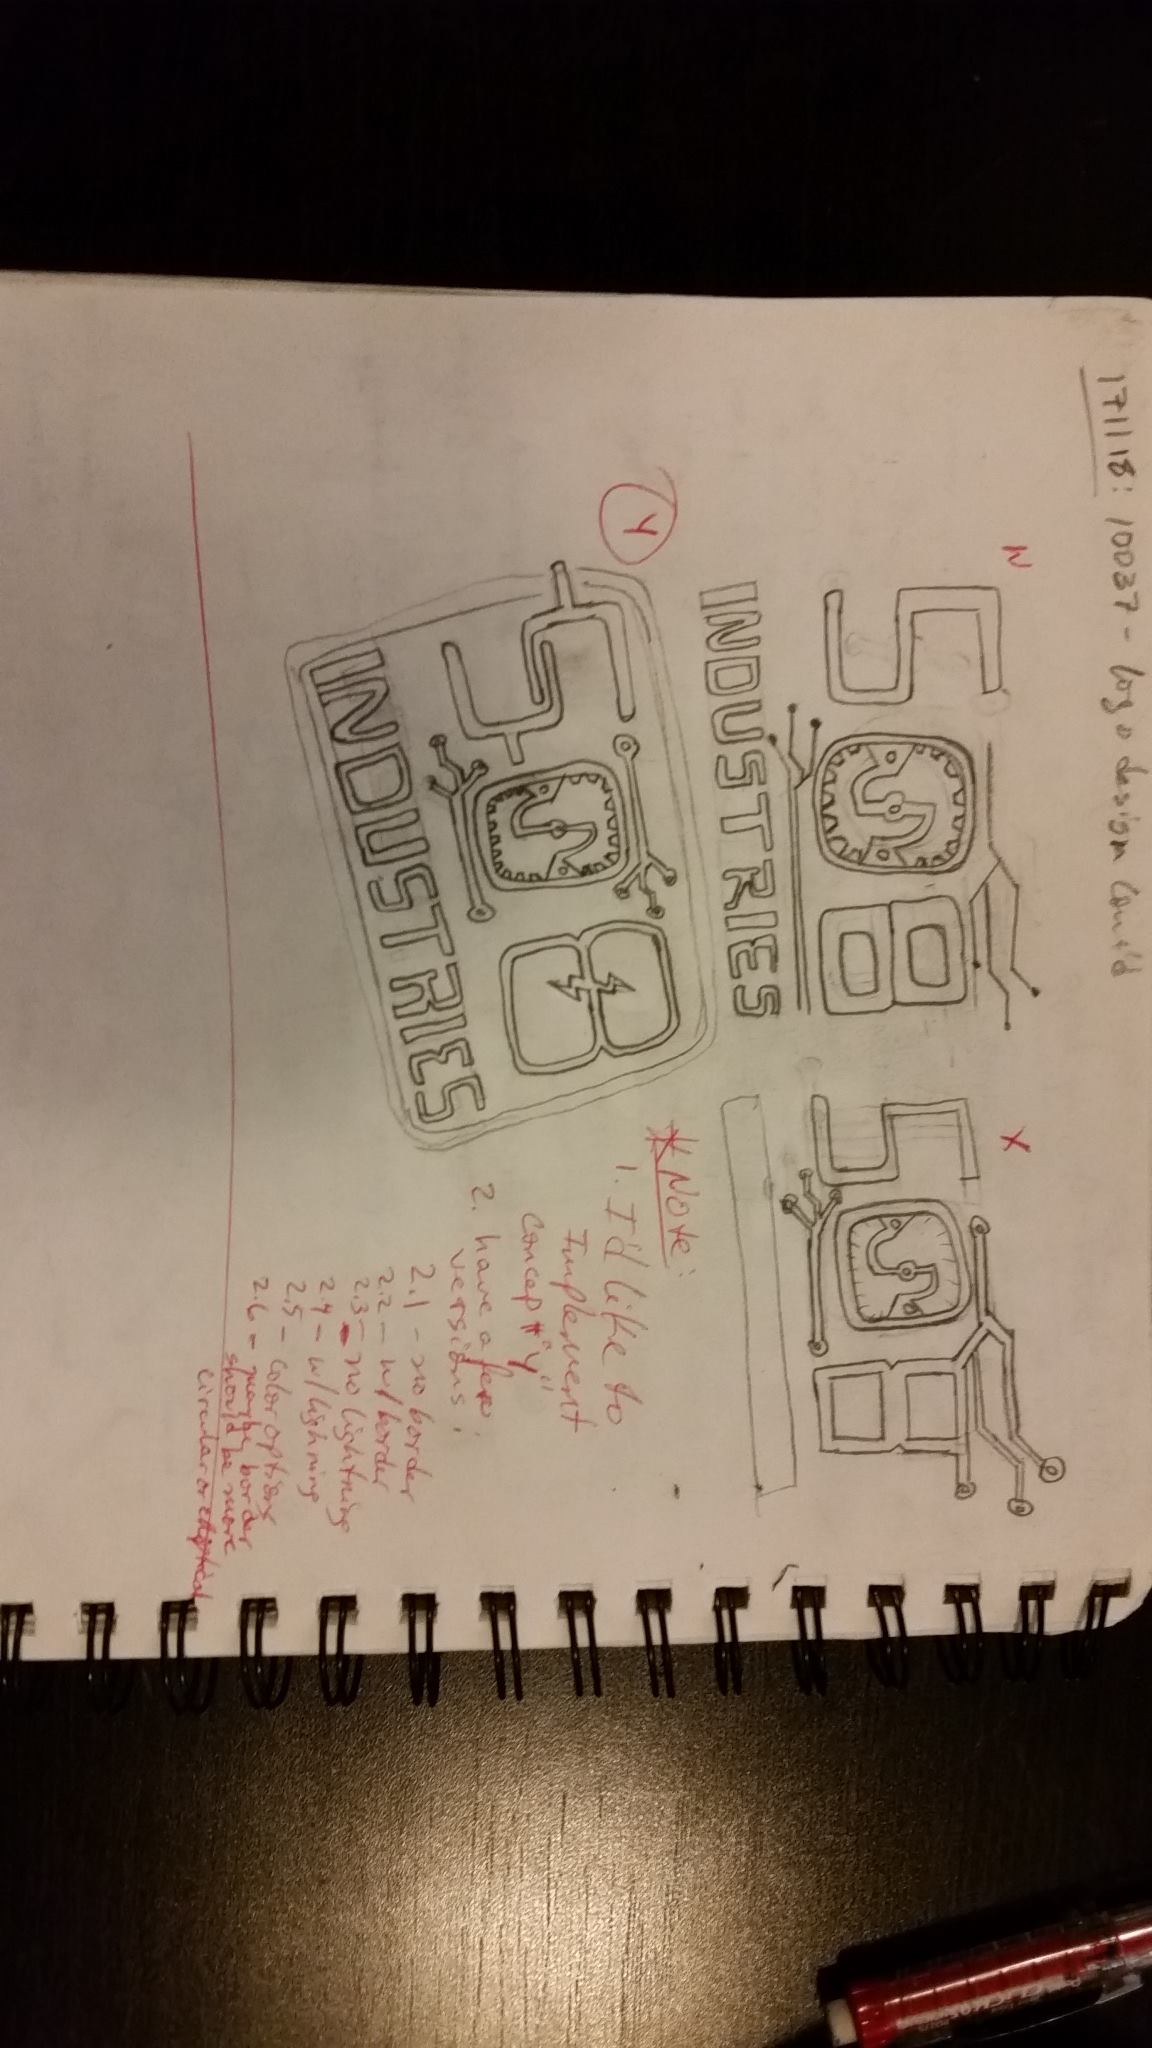 171118: 10037 - logo design cont'd
508
INDUSTRIES
X
508
Y
508
INDUSTRIES
*Note:
1. I'd like to
Implement
Concept "Y"
2. have a few
versions:
2.1 - no border
2.2 - w/border
2.3 - no lightning
2.4 - w/lightning
2.5 - color options
2.6 - maybe border
should be more
circular or elliptical